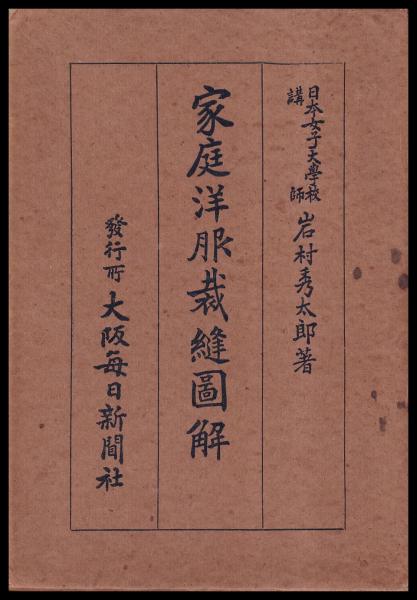 日本女子大學校
講師
岩村秀太郎著
家庭洋服裁縫圖解
發行所 大阪每日新聞社